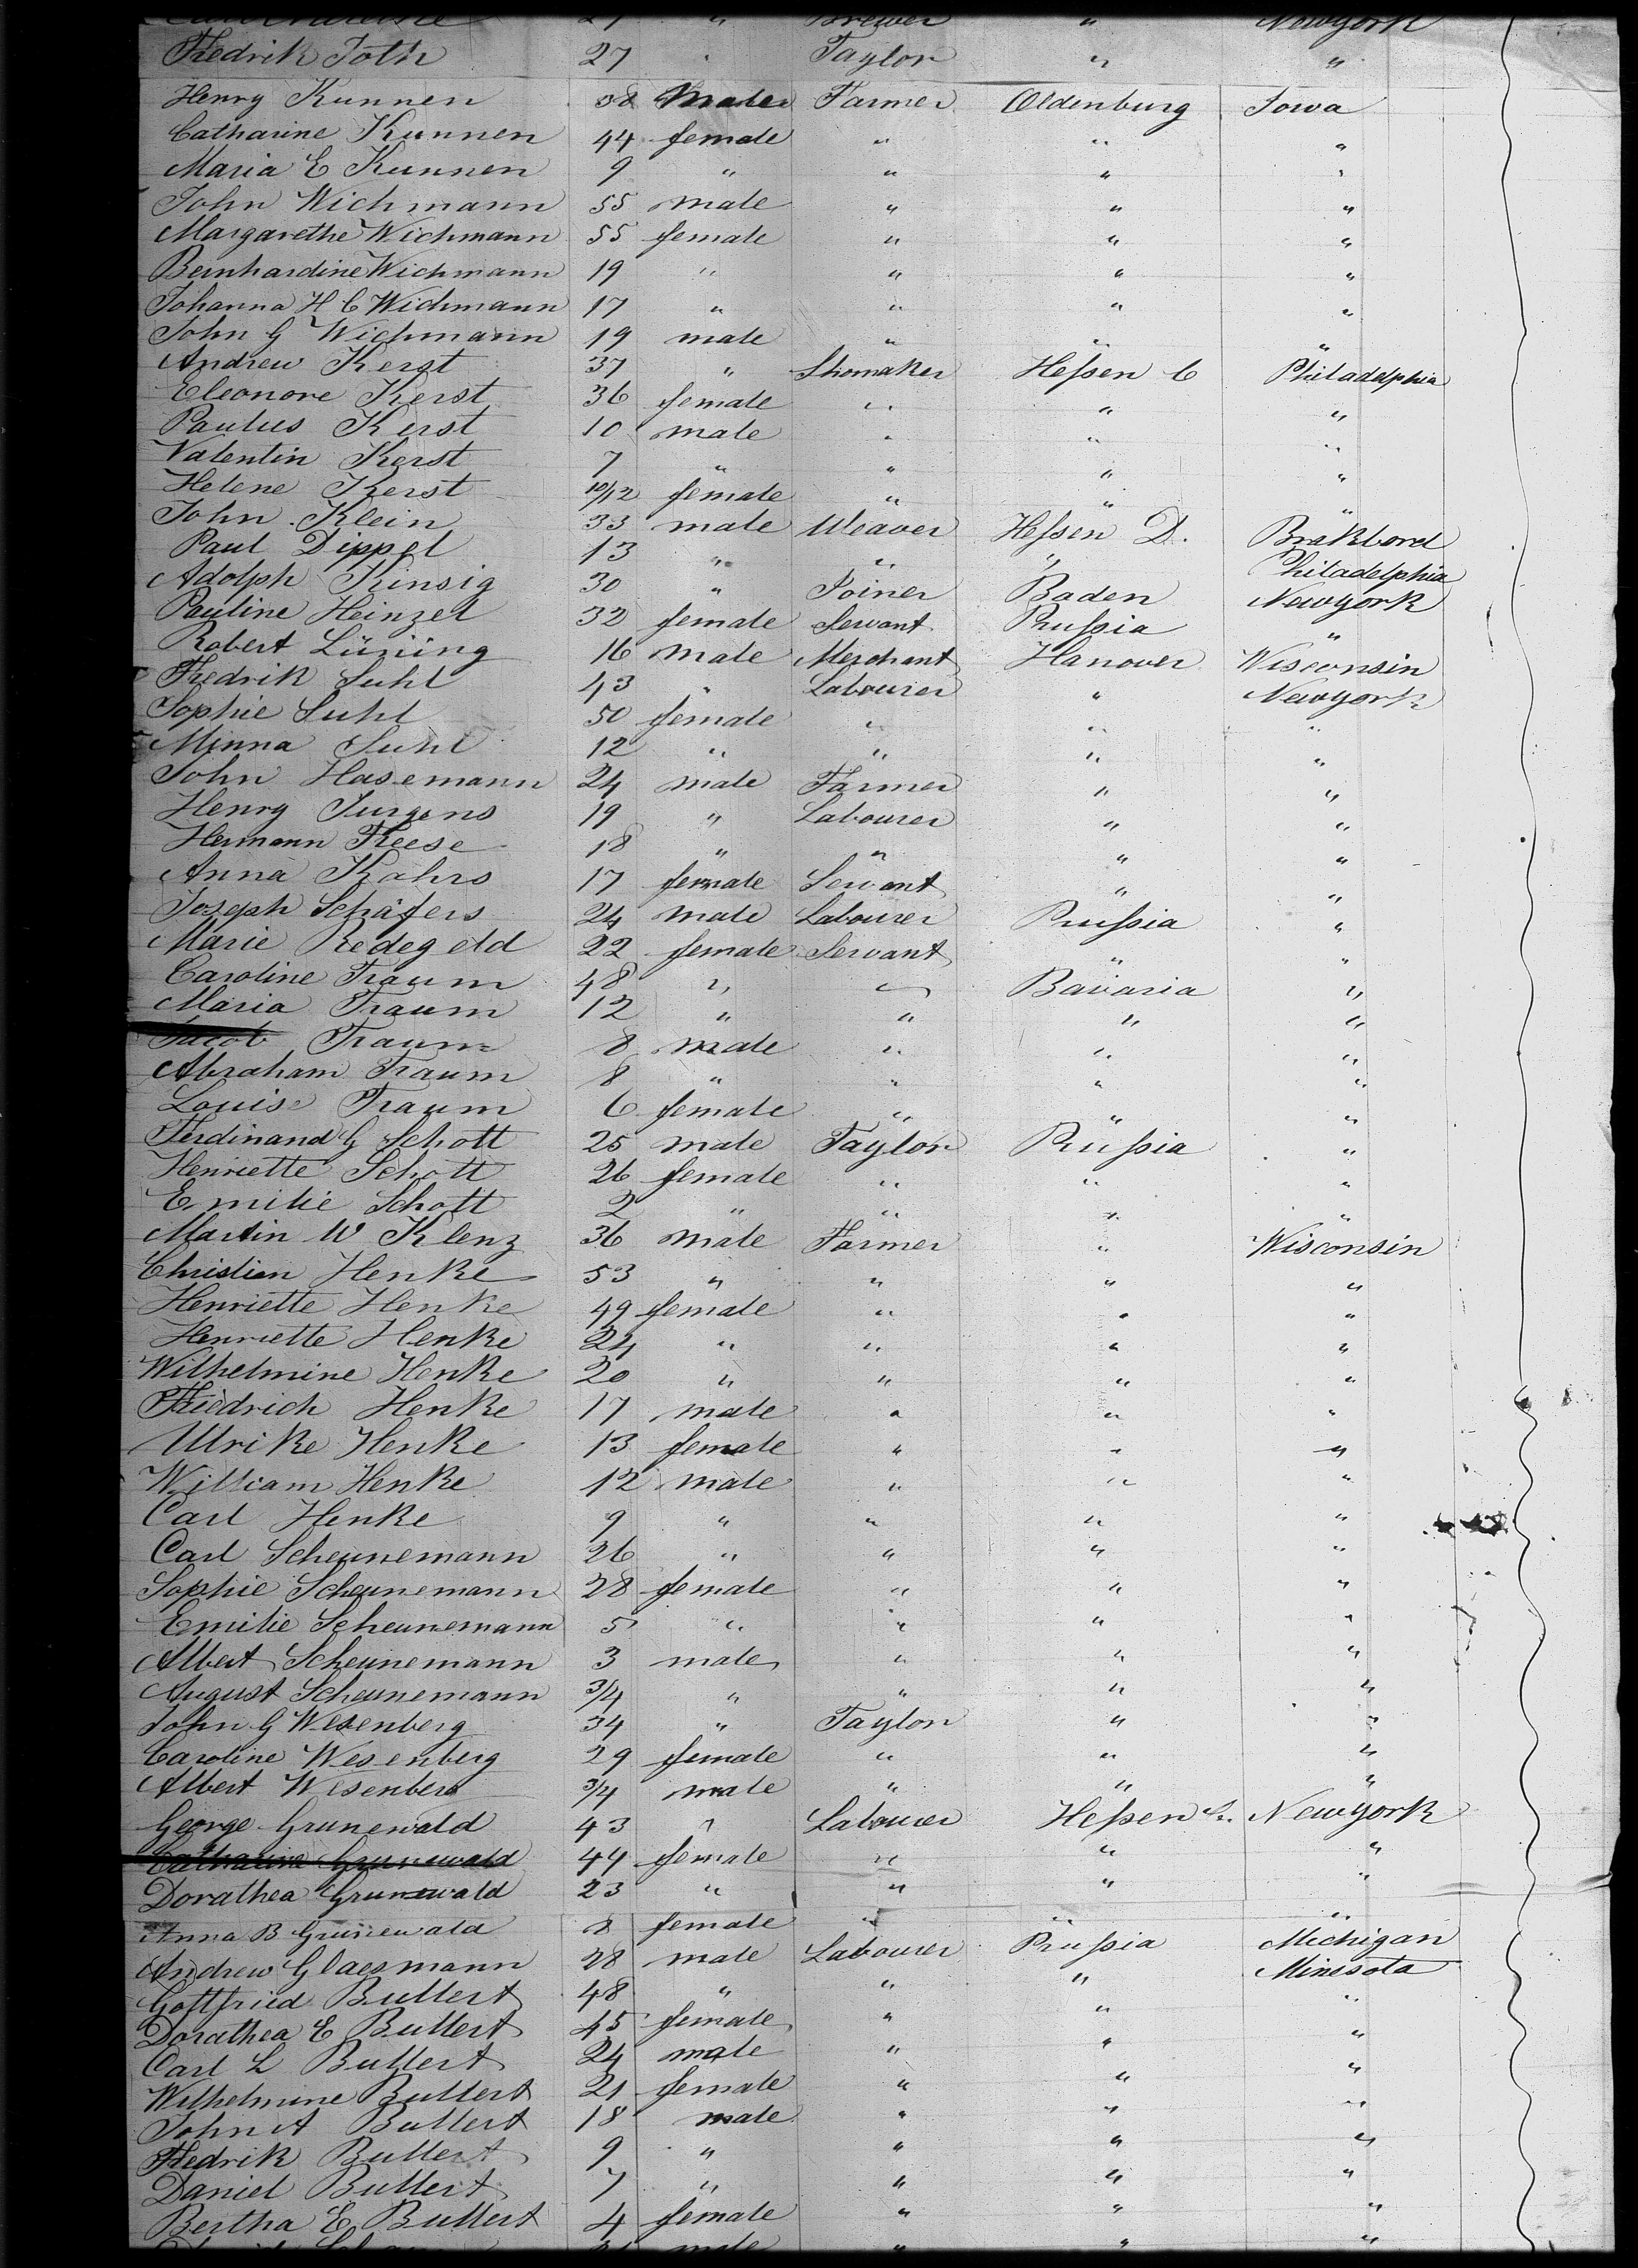 27 " Brewer " Newyork
Fredrik Toth 27 " Taylor " "
Henry Kunnen 38 Male Farmer Oldenburg Iowa
Catharine Kunnen 44 female " " "
Maria E Kunnen 9 " " " "
John Wichmann 55 male " " "
Margarethe Wichmann 55 female " " "
Bernhardine Wichmann 19 " " " "
Johanna H C Wichmann 17 " " " "
John G Wichmann 19 male " " "
Andrew Kerst 37 " Shomaker Hessen C Philadelphia
Eleonore Kerst 36 female " " "
Paulus Kerst 10 male " " "
Valentin Kerst 7 " " " "
Helene Kerst 10/12 female " " "
John Klein 33 male Weaver Hessen D. Brakbord
Paul Dippel 13 " " " Philadelphia
Adolph Kinsig 30 " Joiner Baden Newyork
Pauline Heinzel 32 female Servant Prussia "
Robert Lüning 16 male Merchant Hanover Wisconsin
Fredrik Suhl 43 " Labourer " Newyork
Sophie Suhl 50 female " " "
Minna Suhl 12 " " " "
John Hasemann 24 male Farmer " "
Henry Jurgens 19 " Labourer " "
Hermann Freese 18 " " " "
Anna Kahrs 17 female Servant " "
Joseph Schäfers 24 male Labourer Prussia "
Marie Redegeld 22 female Servant " "
Caroline Traum 48 " " Bavaria "
Maria Traum 12 " " " "
Jacob Traum 8 male " " "
Abraham Traum 8 " " " "
Louise Traum 6 female " " "
Ferdinand G Schott 25 male Taylor Prussia "
Henriette Schott 26 female " " "
Emilie Schott 2 " " " "
Martin W Klenz 36 male Farmer " Wisconsin
Christian Henke 53 " " " "
Henriette Henke 49 female " " "
Henriette Henke 24 " " " "
Wilhelmine Henke 20 " " " "
Friedrich Henke 17 male " " "
Ulrike Henke 13 female " " "
William Henke 12 male " " "
Carl Henke 9 " " " "
Carl Scheunemann 26 " " " "
Sophie Scheunemann 28 female " " "
Emilie Scheunemann 5 " " " "
Albert Scheunemann 3 male " " "
August Scheunemann 3/4 " " " "
John G Wesenberg 34 " Taylor " "
Caroline Wesenberg 29 female " " "
Albert Wesenberg 3/4 male " " "
George Grunewald 43 " Labourer Hessen Newyork
Catharina Grunewald 44 female " " "
Dorathea Grunewald 23 " " " "
Anna B Grunewald 8 female " " "
Andrew Glaesmann 28 male Labourer Prussia Michigan
Gottfried Buttert 48 " " " Minesota
Dorathea E Buttert 45 female " " "
Carl L Buttert 24 male " " "
Wilhelmine Buttert 21 female " " "
John A Buttert 18 male " " "
Fredrik Buttert 9 " " " "
Daniel Buttert 7 " " " "
Bertha E Buttert 4 female " " "
male " " "